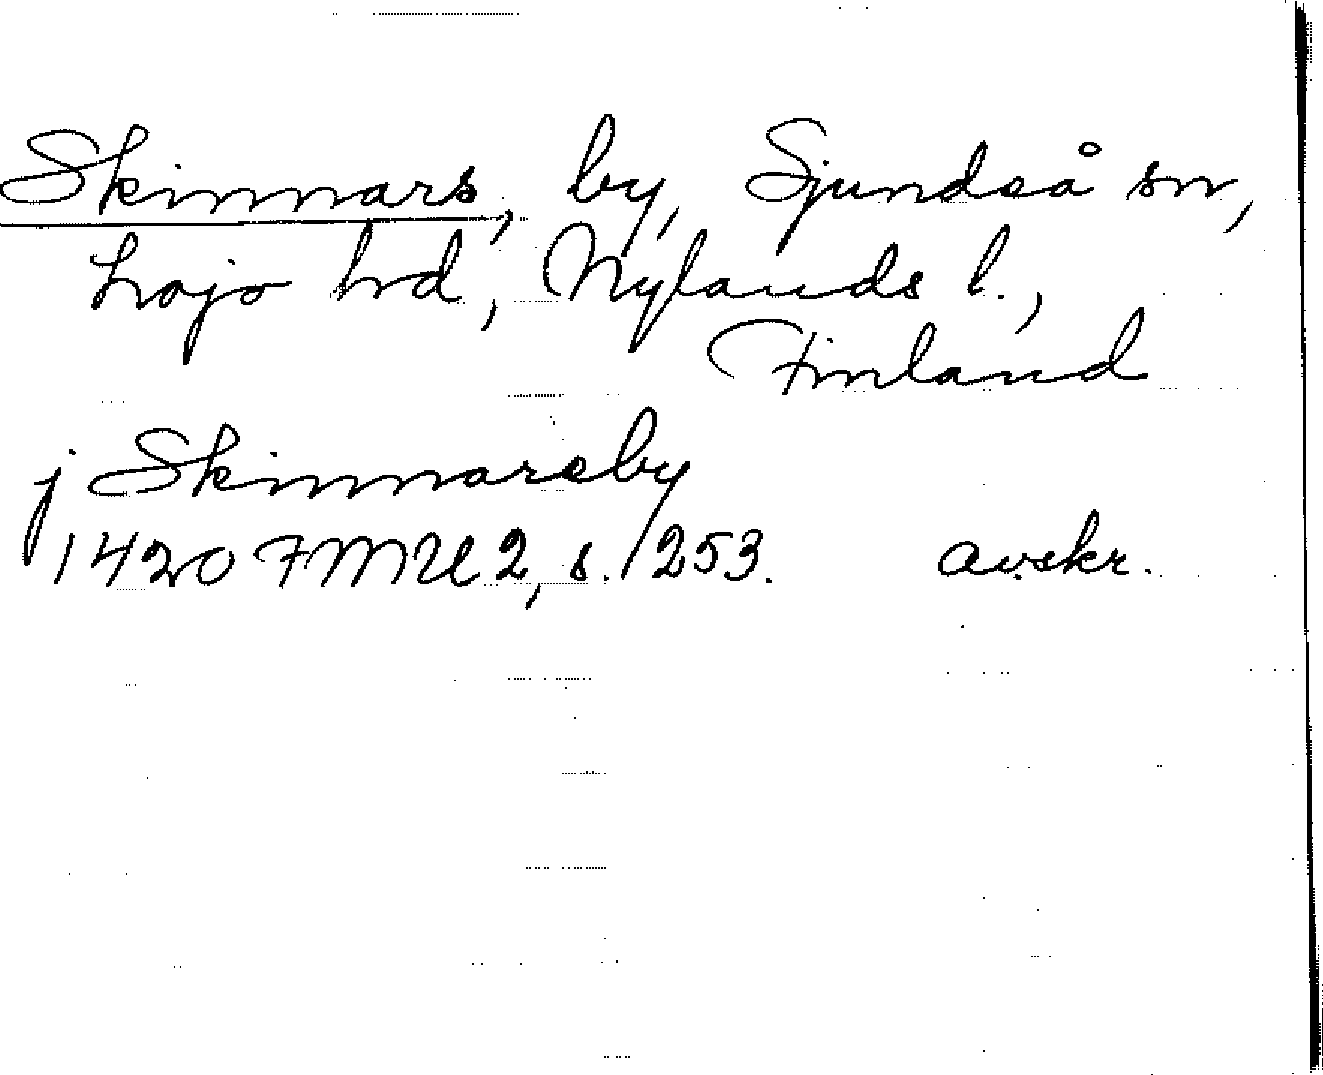 Skinnars, by, Sjundeå sn,
Lojo hrd, Nylands l.,
Finland
j Skinnarsby
1420 FMU 2, s. 253. avskr.